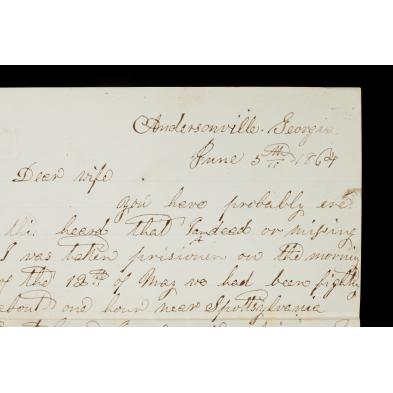 Andersonville. Georgia
June 5th 1864
Dear wife
you have probably ere
this heard that I am dead or missing
I was taken prisioner on the morning
of the 12th of May we had been fighting
about one hour near Spottsylvania